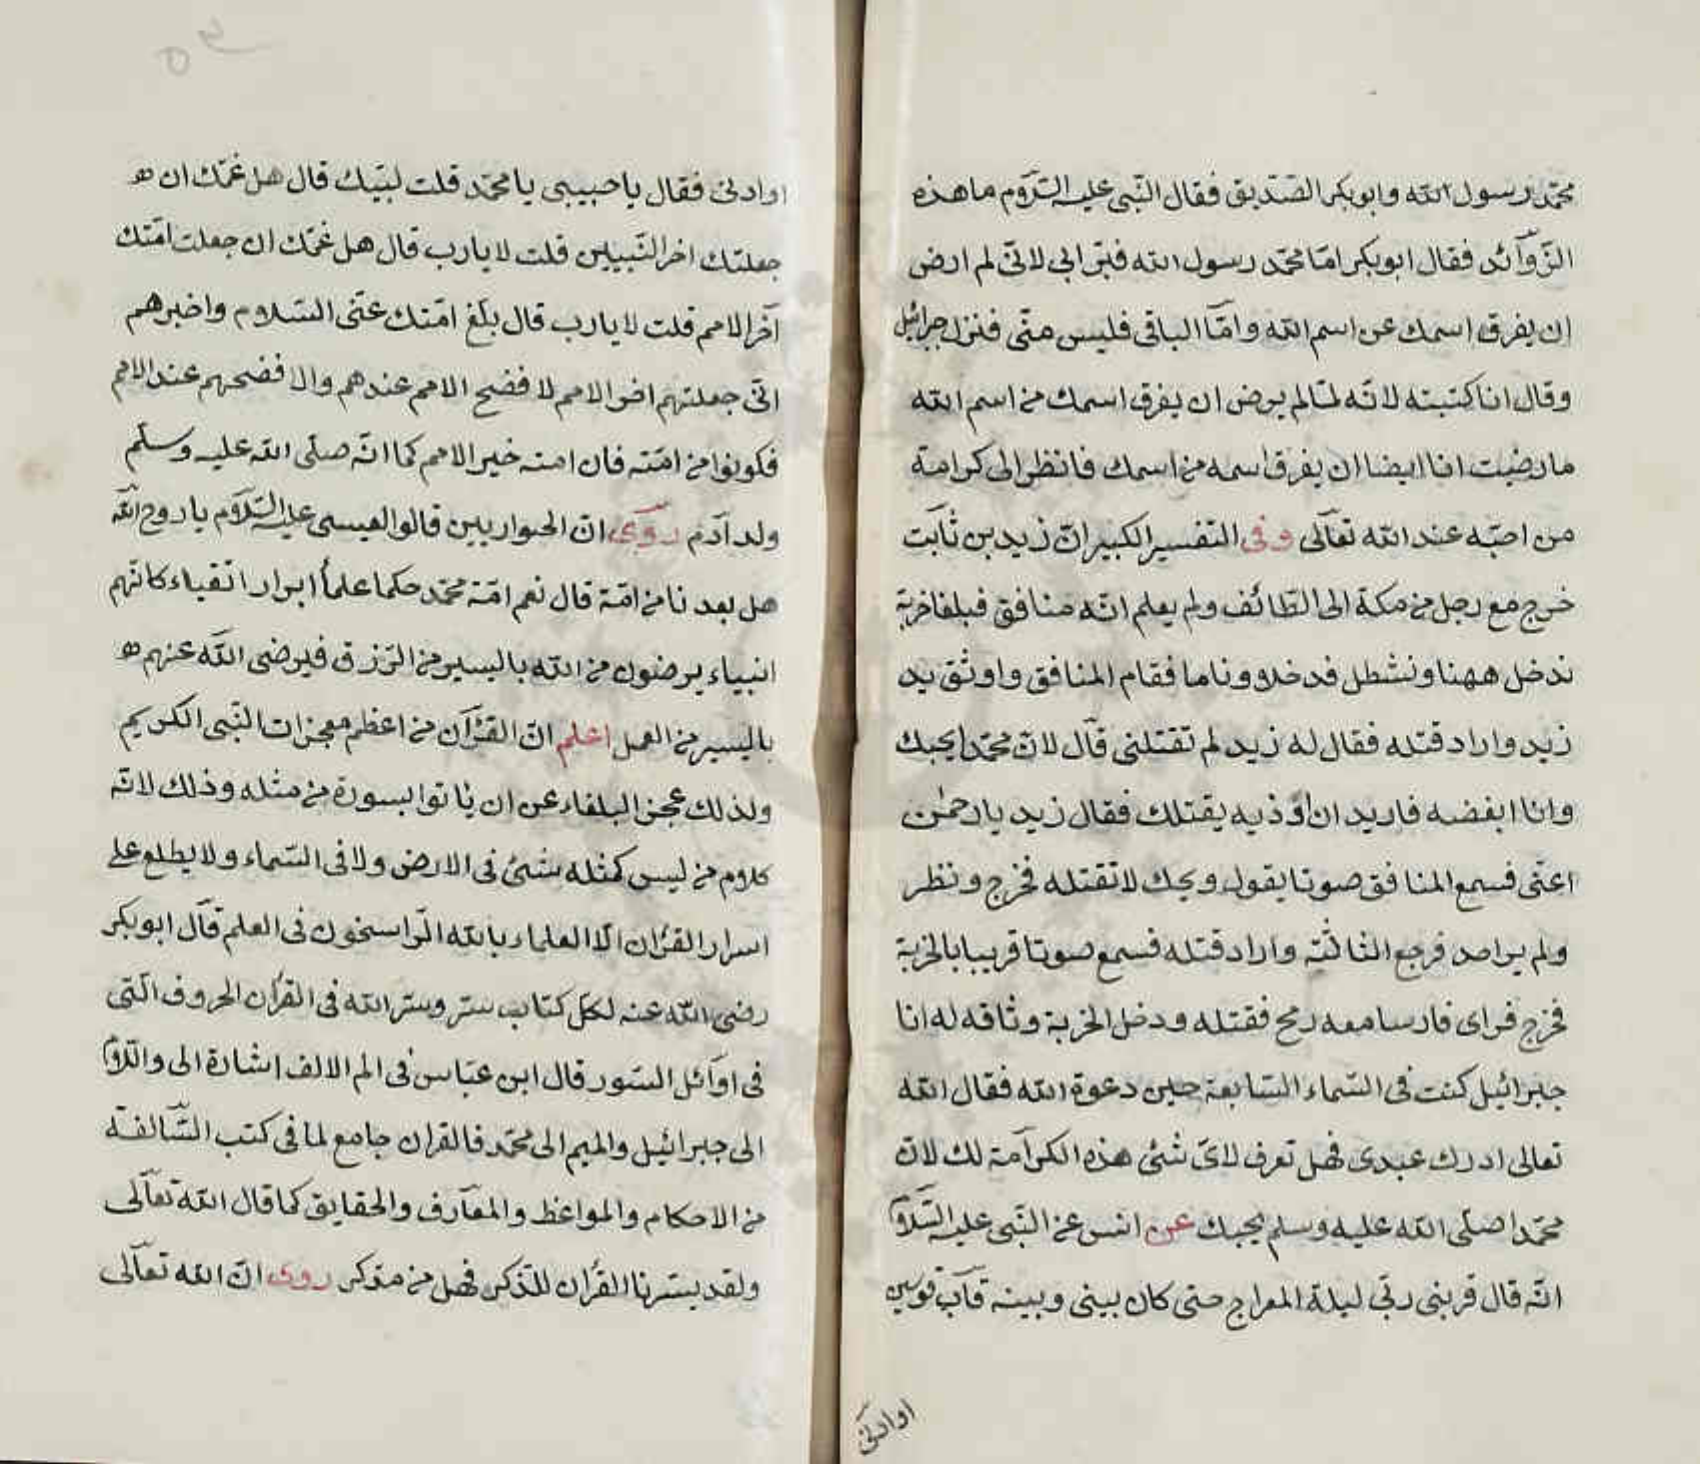 محمّد رسول الله وابوبكر الصّدّيق فقال النّبى عليه السّلام ما هذه
الزّوآئد فقال ابوبكر امّا محمّد رسول الله فبّرابى لانّى لم ارض
ان يفرق اسمك عن اسم الله وامّا الباقى فليس منّى فنزل جبرائيل
وقال انا كتبته لانّه لمّا لم يرض ان يفرق اسمك من اسم الله
ما رضيت انا ايضا ان يفرق اسمه من اسمك فانظر الى كرامة
من احبّه عند الله تعآلى وفى التفسير الكبير انّ زيد بن ثابت
خرج مع رجل من مكة الى الطّائف ولم يعلم انّه منافق فبلغا خربة
ندخل ههنا ونشطل فدخلا وناما فقام المنافق واوثق يد
زيد واراد قتله فقال له زيد لم تقتلنى قال لانّ محمّدا يحبك
وانا ابغضه فاريد ان اوذيه بقتلك فقال زيد يا رحمٰن
اعنّى فسمع المنافق صوتا يقول ويحك لا تقتله فخرج ونظر
ولم ير احد فرجع الثالثة واراد قتله فسمع صوتا قريبا بالخربة
فخرج فراى فارسا معه رمح فقتله ودخل الخربة وثاقه له انا
جبرائيل كنت فى السّماء السّابعة حين دعوة الله فقال الله
تعالى ادرك عبدى فهل تعرف لاىّ شئ هذه الكرآمة لك لانّ
محمّدا صلّى الله عليه وسلم يحبك عن انس عن النّبى عليه السّلام
انّه قال قربنى ربّى ليلة المعراج حتى كان بينى وبينه قآب قوسين
اوادنى
اوادنى فقال يا حبيبى يا محمّد قلت لبّيك قال هل غمّك ان
جعلتك اخر النّبيين قلت لا يا رب قال هل غمّك ان جعلت امّتك
آخر الامم قلت لا يا رب قال بلّغ امّتك عنّى السّلام واخبرهم
انّى جعلتهم اخر الامم لا فضح الامم عندهم ولا فضحهم عند الامم
فكونوا من امّته فان امته خير الامم كما انّه صلّى الله عليه وسلّم
ولد آدم روى انّ الحواريين قالوا لعيسى عليه السّلام يا روح الله
هل بعدنا من امّة قال نعم امّة محمّد حكما علمأ ابرار اتقياء كانّهم
انبياء يرضون من الله باليسير من الرّزق فيرضى الله عنهم
باليسير من العمل اعلم انّ القرآن من اعظم معجزات النّبى الكريم
ولذلك عجز البلغاء عن ان ياتوا بسورة من مثله وذلك لانّه
كلام من ليس كمثله شئ فى الارض ولا فى السّماء ولا يطلع على
اسرار القرٰان الّا العلماء بالله الرّاسخون فى العلم قال ابوبكر
رضى الله عنه لكلّ كتاب سرّ وسرّ الله فى القرأن الحروف الّتى
فى اوآئل السّور قال ابن عبّاس فى الم الالف اشارة الى واللام
الى جبرائيل والميم الى محمّد فالقران جامع لما فى كتب السّالفة
من الاحكام والمواعظ والمعآرف والحقايق كما قال الله تعآلى
ولقد يسّرنا القرٰان للذّكر فهل من مدّكر روى انّ الله تعآلى